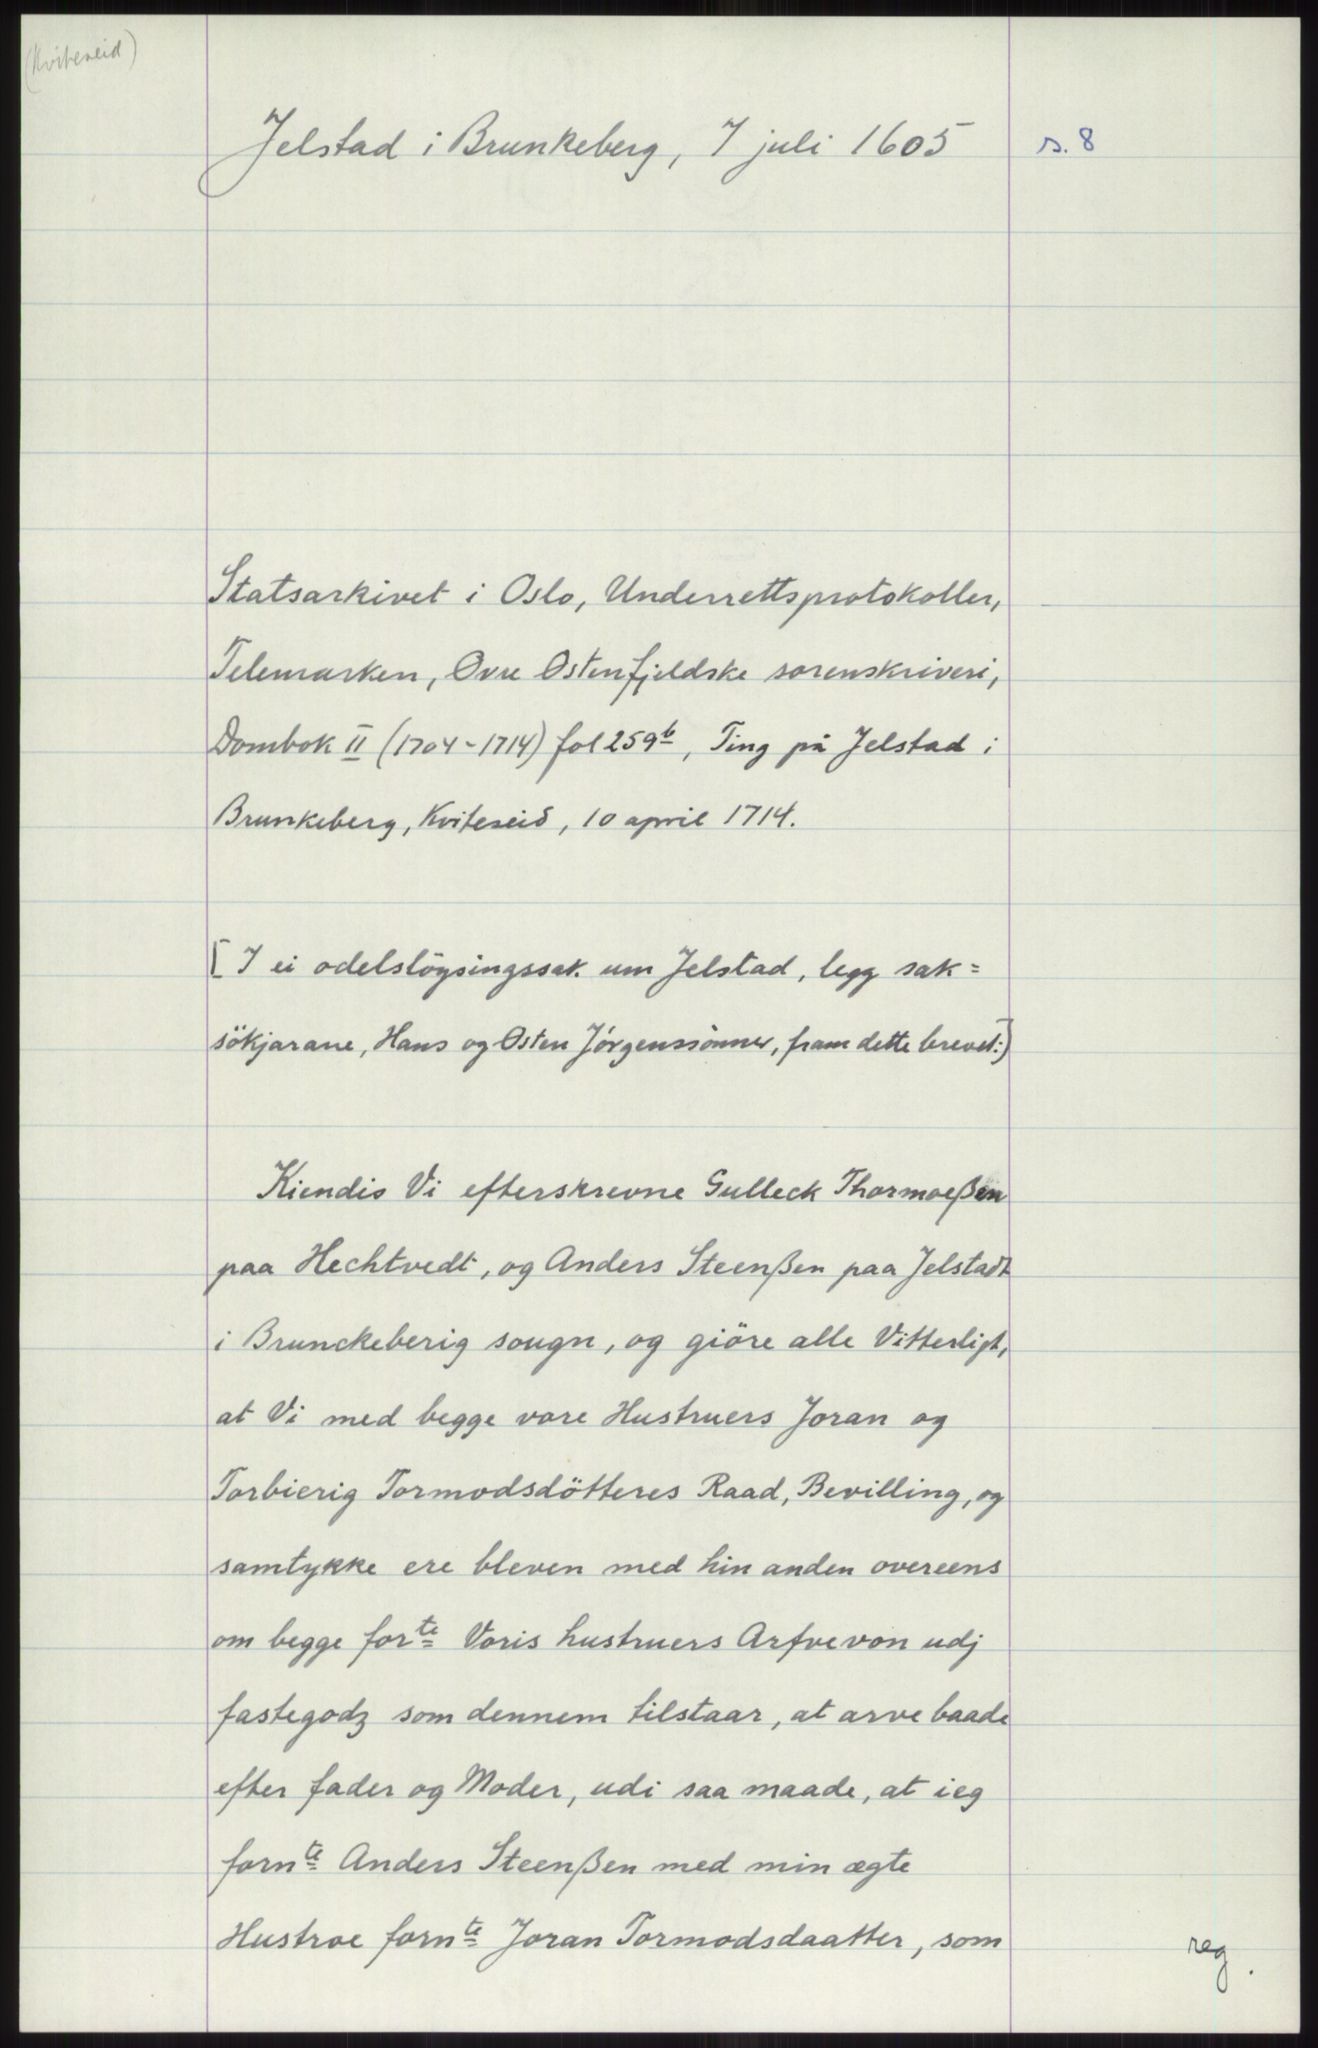 (Kviteseid)
Jelstad i Brunkeberg, 7 juli 1605
s. 8
Statsarkivet i Oslo, Underrettsprotokoller,
Telemarken, Øvre Østenfjeldske sorenskriveri,
Dombok II (1704-1714) fol 259b, Ting på Jelstad i
Brunkeberg, Kviteseid, 10 april 1714.
[I ei odelslöysingssak um Jelstad, legg sak=
sökjarane, Hans og Østen Jørgenssønner, fram dette brevet:]
Kiendis Vi efterskrevne Gulleck Thormoeßen
paa Hechtvedt, og Anders Steenßen paa Jelstadt
i Brunckeberig sougn, og giöre alle Vitterligt,
at Vi med begge vore Hustruers Joran og
Torbierig Tormodsdötteres Raad, Bevilling, og
samtykke ere bleven med hin anden overeens
om begge forte Voris hustruers Arfvevon udj
fastegodz som dennem tilstaar, at arve baade
efter fader og Moder, udi saa maade, at ieg
fornte Anders Steenßen med min ægte
Hustroe fornte Joran Tormodsdaatter, som
reg.